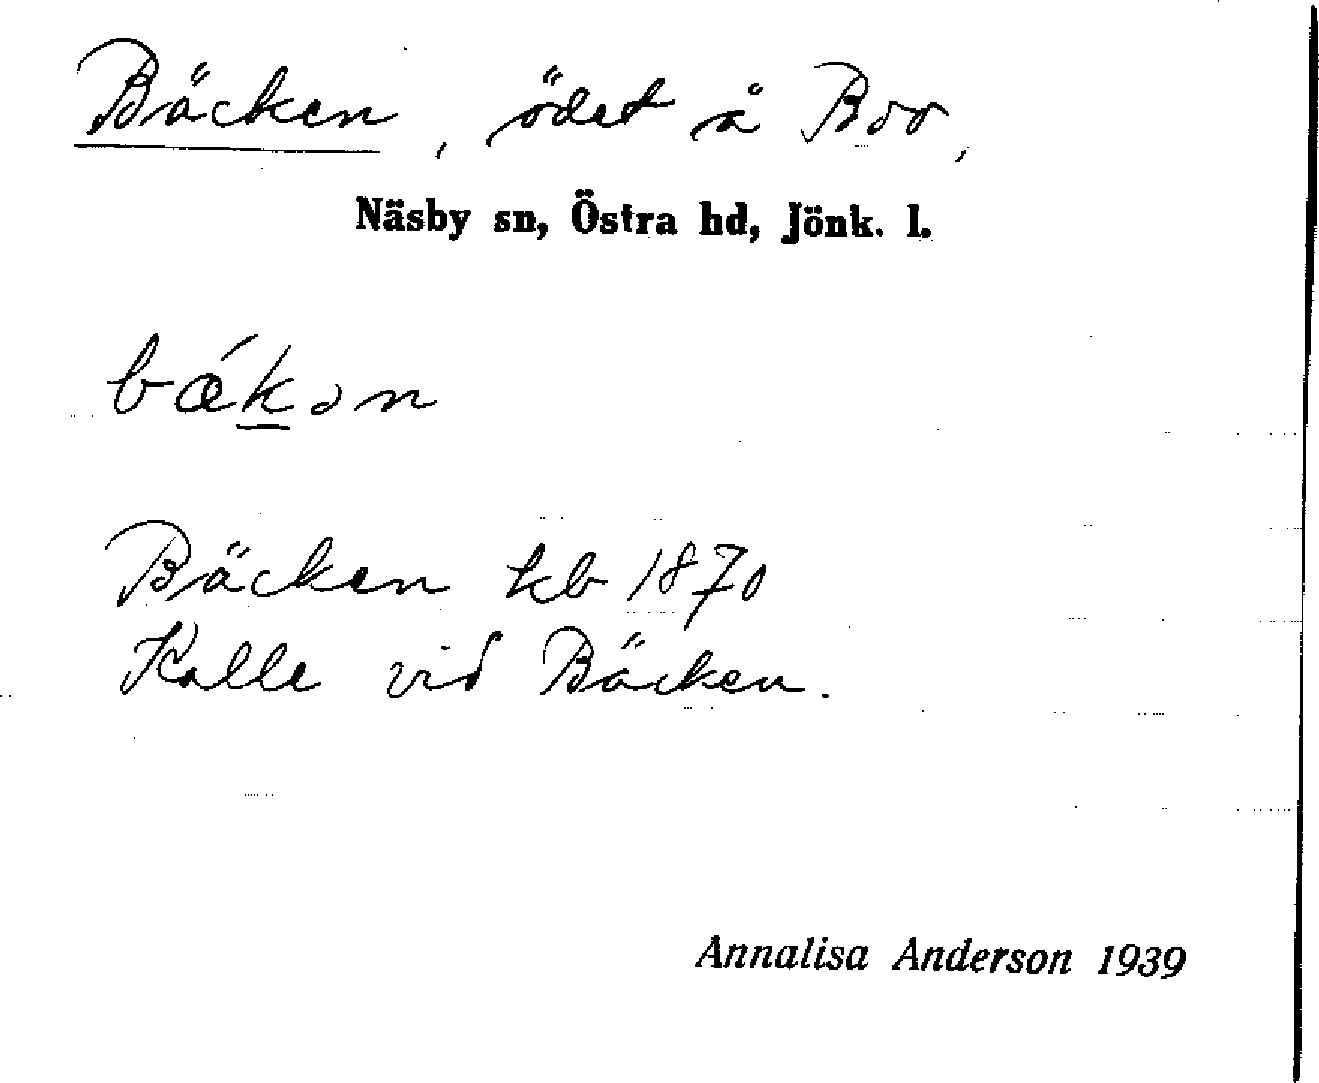 Bäcken, ödet å Boo,
Näsby sn, Östra hd, Jönk. l.
bǽkən
Bäcken kb 1870
Kalle vid Bäcken.
Annalisa Anderson 1939